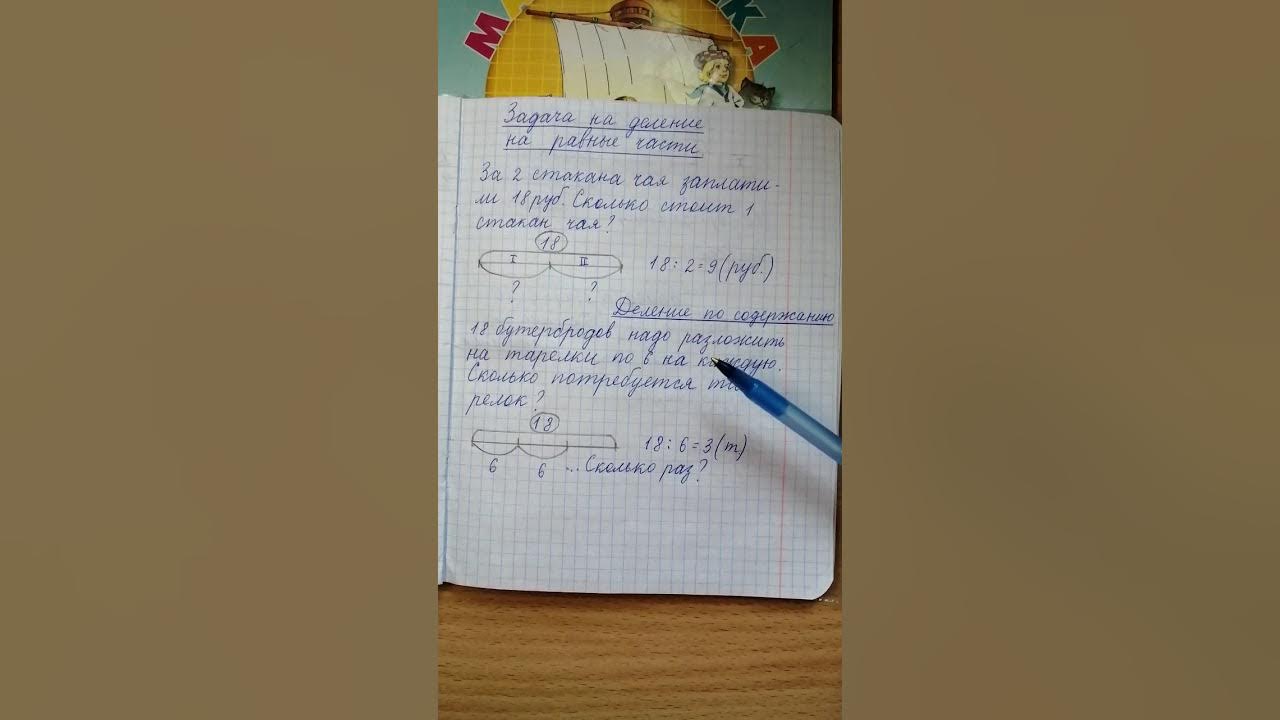 МА КА
Задача на деление
на равные части
За 2 стакана чая заплати-
ли 18 руб. Сколько стоит 1
стакан чая?
18
I II
18 : 2 = 9 (руб.)
? ?
Деление по содержанию
18 бутербродов надо разложить
на тарелки по 6 на каждую.
Сколько потребуется та
релок?
18
18 : 6 = 3 (т)
6 6 ... Сколько раз?